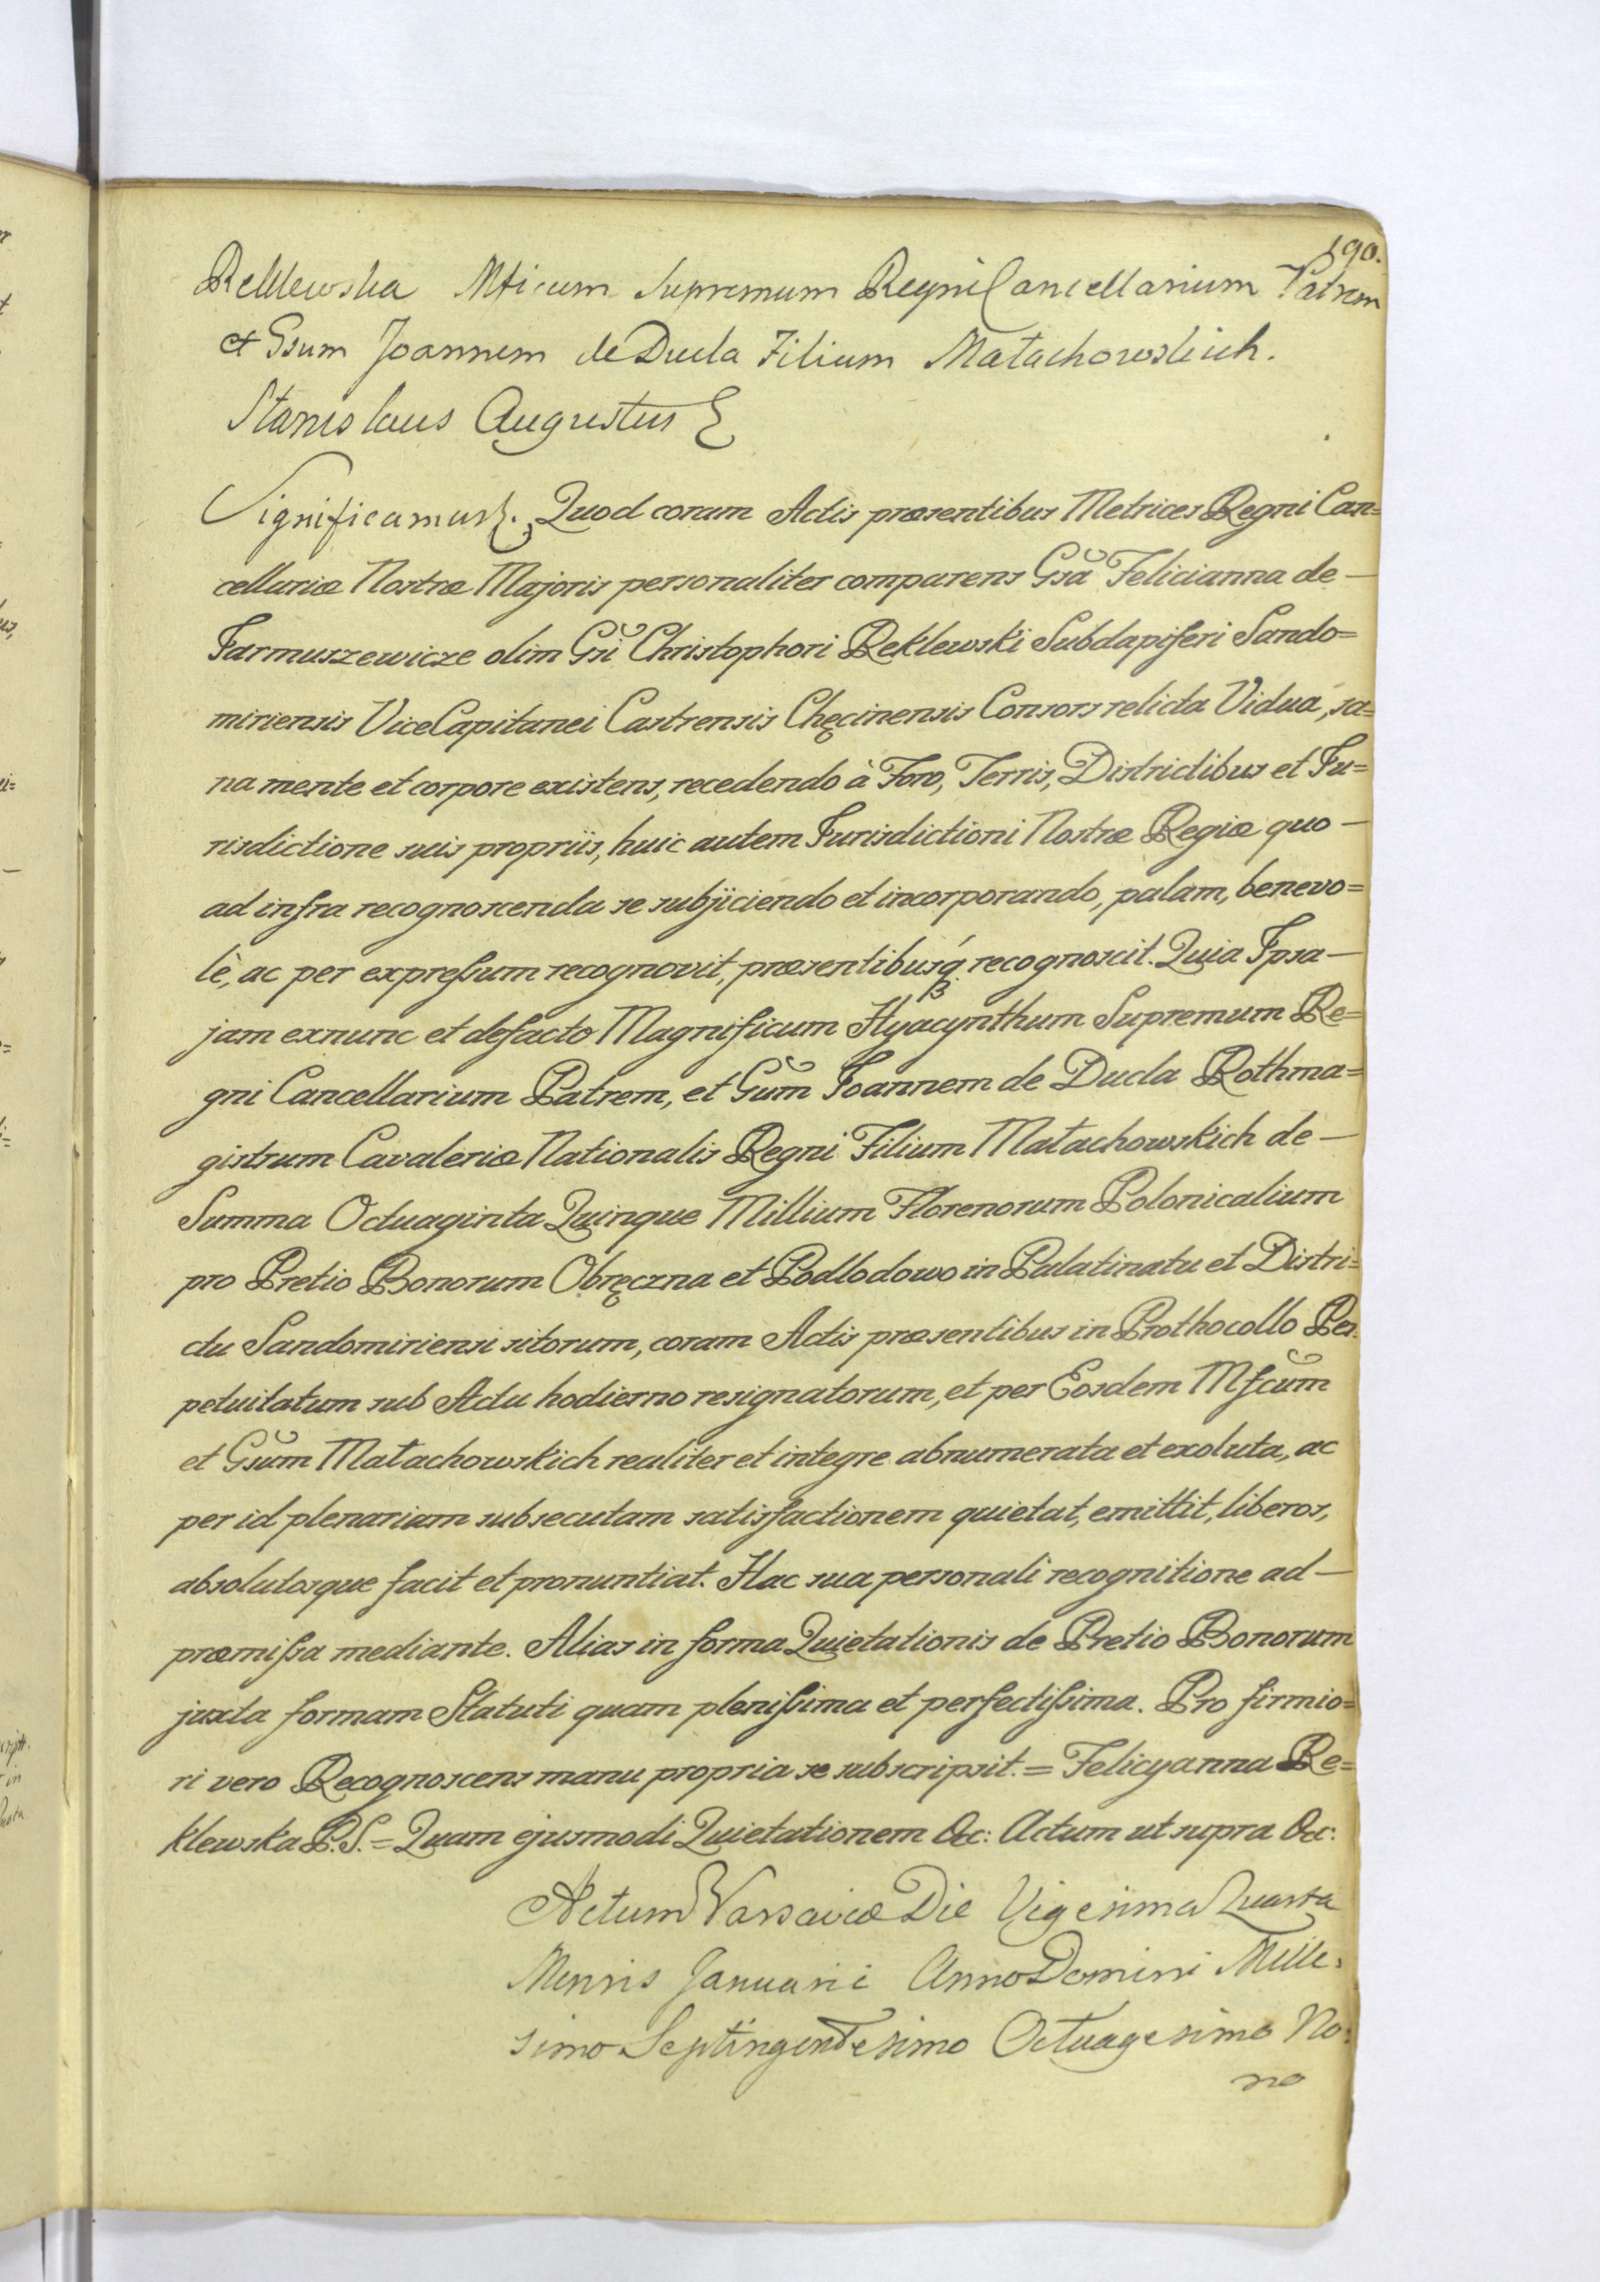 190.
Reklewska Mficum Supremum Regni Cancellarium Patrem
et Gsum Joannem de Ducla Filium Małachowskich.
Stanislaus Augustus &
Significamus &. Quod coram Actis præsentibus Metrices Regni Can=
cellariæ Nostræ Majoris personaliter comparens Gsa Felicianna de —
Jarmuszewicze olim Gsi Christophori Reklewski Subdapiferi Sando=
miriensis ViceCapitanei Castrensis Chęcinensis Consors relicta Vidua, sa=
na mente et corpore existens, recedendo à Foro, Terris, Districtibus et Ju=
risdictione suis propriis, huic autem Jurisdictioni Nostræ Regiæ quo —
ad infra recognoscenda se subjiciendo et incorporando, palam, benevo=
lè, ac per expreßum recognovit, præsentibusq́ recognoscit. Quia Ipsa —
jam exnunc et defacto Magnificum Hyacynthum Supremum Re=
gni Cancellarium Patrem, et Gsum Joannem de Ducla Rothma=
gistrum Cavaleriæ Nationalis Regni Filium Małachowskich de —
Summa Octuaginta Quinque Millium Florenorum Polonicalium
pro Pretio Bonorum Obręczna et Podlodowo in Palatinatu et Distri=
ctu Sandomiriensi sitorum, coram Actis præsentibus in Prothocollo Per=
petuitatum sub Actu hodierno resignatorum, et per Eosdem Mfcum
et Gsum Małachowskich realiter et integre abnumerata et exoluta, ac
per id plenariam subsecutam satisfactionem quietat, emittit, liberos,
absolutosque facit et pronuntiat. Hac sua personali recognitione ad —
præmißa mediante. Alias in forma Quietationis de Pretio Bonorum
juxta formam Statuti quam plenißima et perfectißima. Pro firmio=
ri vero Recognoscens manu propria se subscripsit. = Felicyanna Re=
klewska P.S. = Quam ejusmodi Quietationem &c: Actum ut supra &c:
Actum Varsaviæ Die Vigesima Quarta
Mensis Januarii Anno Domini Mille=
simo Septingentesimo Octuagesimo No=
no